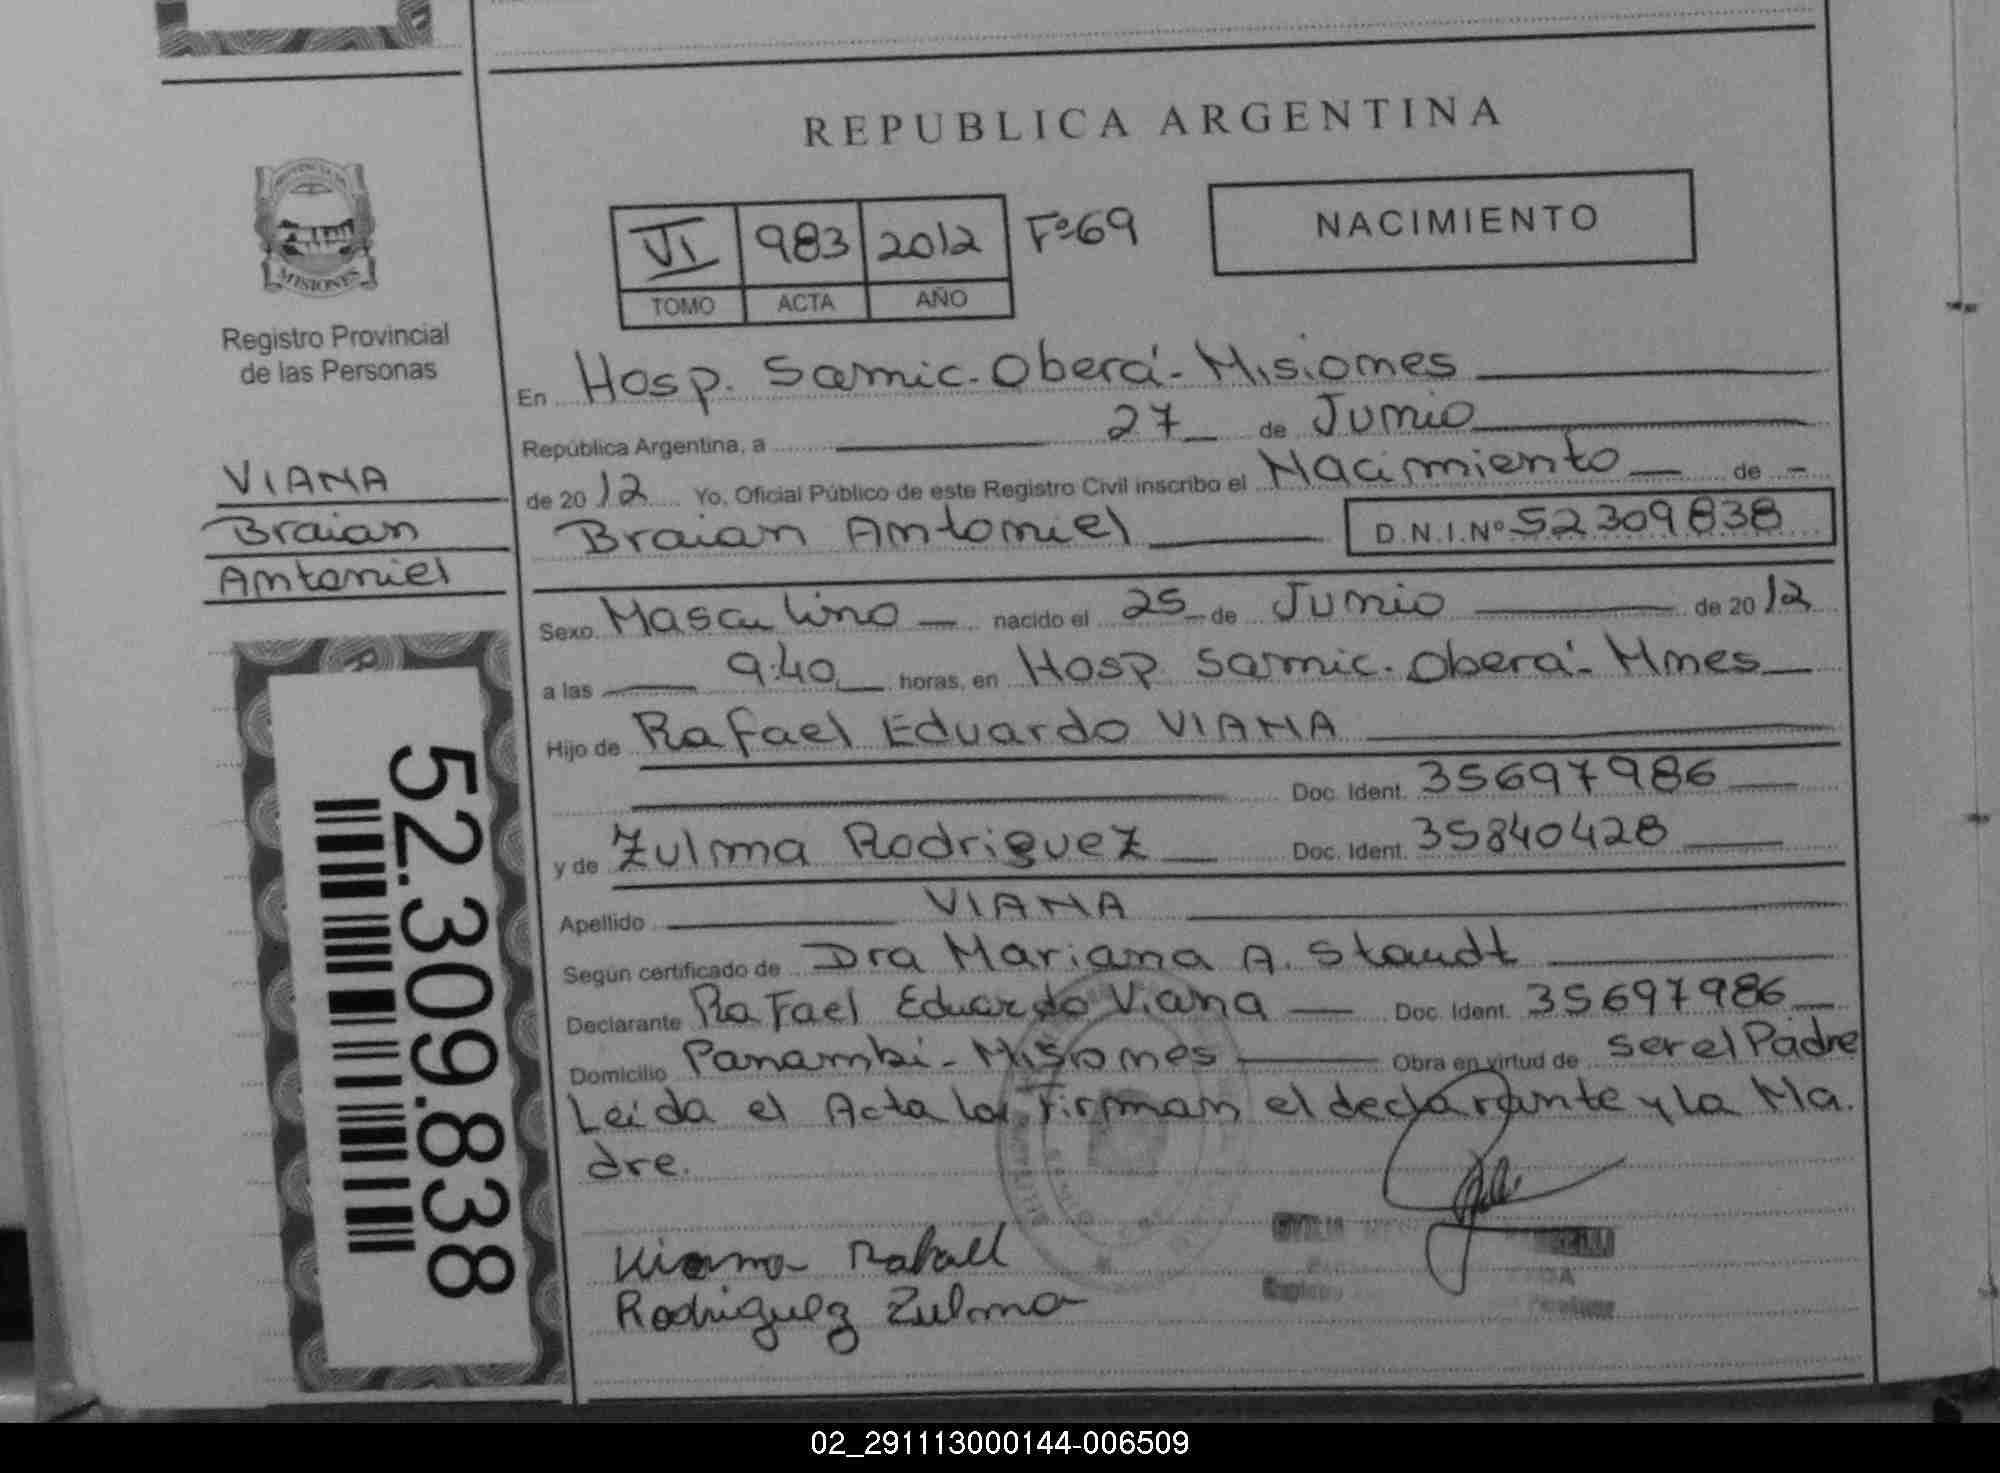 REPUBLICA ARGENTINA
PROVINCIA DE
MISIONES
Registro Provincial
de las Personas
VIANA
Braian
Antoniel
52.309.838
VI 983 2012 Fº69
TOMO ACTA AÑO
NACIMIENTO
En Hosp. Samic-Oberá-Misiones
República Argentina, a 27 de Junio
de 2012 Yo, Oficial Público de este Registro Civil inscribo el Nacimiento de
Braian Antoniel D.N.I.Nº 52309838
Sexo Masculino nacido el 25 de Junio de 2012
a las 9:40 horas, en Hosp Samic. Oberá-Mnes
Hijo de Rafael Eduardo VIANA
Doc. Ident. 35697986
y de Zulma Rodriguez Doc. Ident. 35840428
Apellido VIANA
Según certificado de Dra Mariana A. Staudt
Declarante Rafael Eduardo Viana Doc. Ident. 35697986
Domicilio Panambi-Misiones Obra en virtud de ser el Padre
Leida el Acta la Firman el declarante y la Ma.
dre.
Viana Rafael
Rodriguez Zulma
02_291113000144-006509